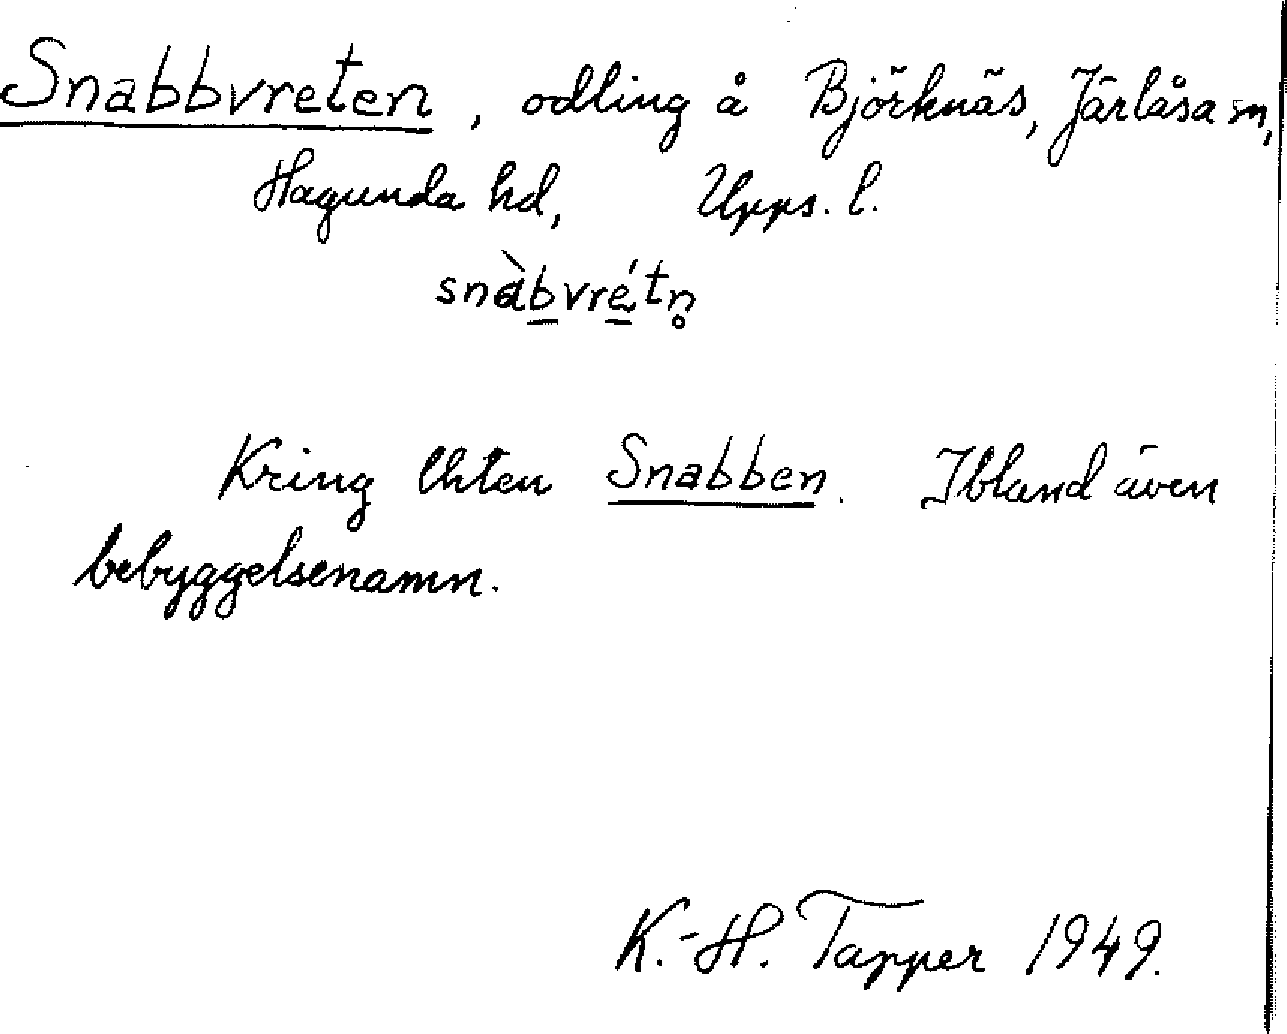 Snabbvreten, odling å Björknäs, Järlåsa sn,
Hagunda hd, Upps. l.
snàb̲vré̲tn̥
Kring Snabben. Ibland även
bebyggelsenamn.
K.-H. Tapper 1949.